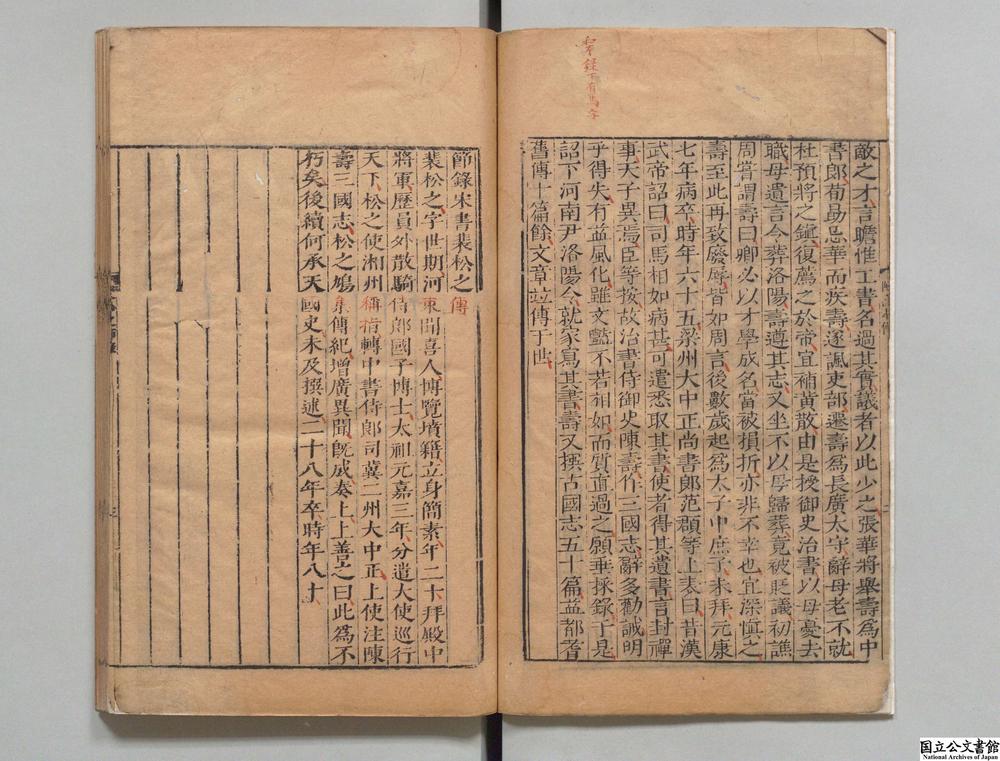 和本錄下有馬字
敵之才言瞻惟工書名過其實議者以此少之張華將舉壽爲中
書郎荀勗忌華而疾壽遂諷吏部遷壽爲長廣太守辭母老不就
杜預將之鎮復薦之於帝宜補黃散由是授御史治書以母憂去
職母遺言令葬洛陽壽遵其志又坐不以母歸葬竟被貶議初譙
周嘗謂壽曰卿必以才學成名當被損折亦非不幸也宜深慎之
壽至此再致廢辱皆如周言後數歲起爲太子中庶子未拜元康
七年病卒時年六十五梁州大中正尚書郎范頵等上表曰昔漢
武帝詔曰司馬相如病甚可遣悉取其書使者得其遺書言封禪
事天子異焉臣等按故治書侍御史陳壽作三國志辭多勸誡明
乎得失有益風化雖文豔不若相如而質直過之願垂採錄于是
詔下河南尹洛陽令就家寫其書壽又撰古國志五十篇益都耆
舊傳十篇餘文章並傳于世
二
節錄宋書裴松之傳
裴松之字世期河東聞喜人博覽墳籍立身簡素年二十拜殿中
將軍歷員外散騎侍郎國子博士太祖元嘉三年分遣大使巡行
天下松之使湘州稱指轉中書侍郎司冀二州大中正上使注陳
壽三國志松之鳩集傳紀增廣異聞旣成奏上上善之曰此爲不
朽矣後續何承天國史未及撰述二十八年卒時年八十
三
国立公文書館
National Archives of Japan